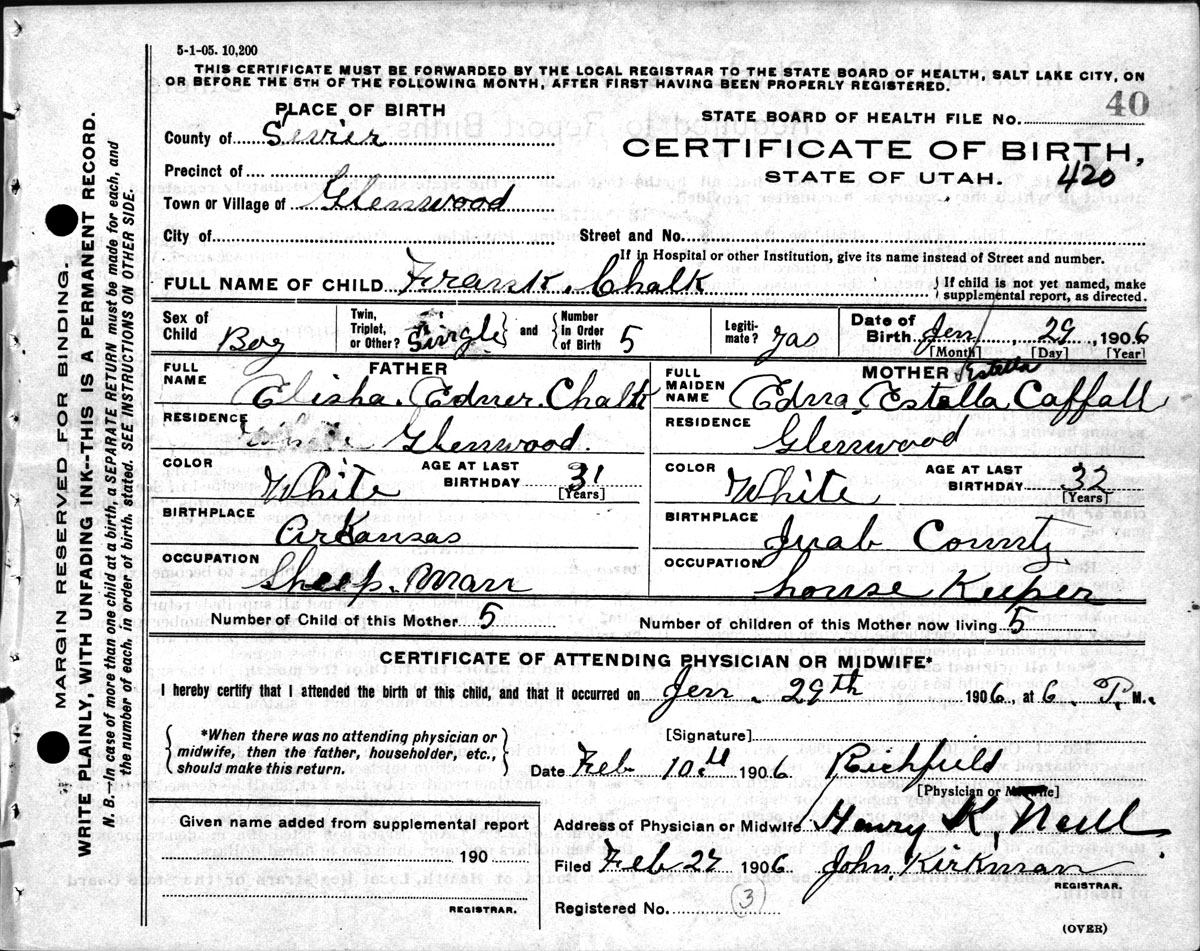 5-1-05. 10,200
THIS CERTIFICATE MUST BE FORWARDED BY THE LOCAL REGISTRAR TO THE STATE BOARD OF HEALTH, SALT LAKE CITY, ON
OR BEFORE THE 5TH OF THE FOLLOWING MONTH, AFTER FIRST HAVING BEEN PROPERLY REGISTERED.
40
PLACE OF BIRTH
STATE BOARD OF HEALTH FILE No.
County of Sevier
CERTIFICATE OF BIRTH,
Precinct of
STATE OF UTAH. 420
Town or Village of Glenwood
City of Street and No.
If in Hospital or other Institution, give its name instead of Street and number.
FULL NAME OF CHILD Frank Chalk {If child is not yet named, make
supplemental report, as directed.
Sex of Child Boy
Twin, Triplet, or Other? Single and Number In Order of Birth 5
Legiti-mate? yas
Date of Birth Jen 29, 1906
[Month] [Day] [Year]
FATHER
FULL NAME Elisha. Edner. Chalk
RESIDENCE Glenwood.
COLOR White AGE AT LAST BIRTHDAY 31
[Years]
BIRTHPLACE Arkansas
OCCUPATION Sheep. Man
MOTHER Estella
FULL MAIDEN NAME Edna. Estella Caffall
RESIDENCE Glenwood
COLOR White AGE AT LAST BIRTHDAY 32
[Years]
BIRTHPLACE Juab County
OCCUPATION house Keeper
Number of Child of this Mother 5 Number of children of this Mother now living 5
CERTIFICATE OF ATTENDING PHYSICIAN OR MIDWIFE*
I hereby certify that I attended the birth of this child, and that it occurred on Jen. 29th 1906, at 6. P. M.
{*When there was no attending physician or
midwife, then the father, householder, etc.,
should make this return.}
[Signature]
Date Feb 10.th 1906 Richfield
[Physician or Midwife]
Given name added from supplemental report
190
REGISTRAR.
Address of Physician or Midwife Henry K. Neill
Filed Feb 27 1906 John. Kirkman
REGISTRAR.
Registered No. (3)
(OVER)
MARGIN RESERVED FOR BINDING.
WRITE PLAINLY, WITH UNFADING INK--THIS IS A PERMANENT RECORD.
N. B.--In case of more than one child at a birth, a SEPARATE RETURN must be made for each, and
the number of each, in order of birth, stated. SEE INSTRUCTIONS ON OTHER SIDE.